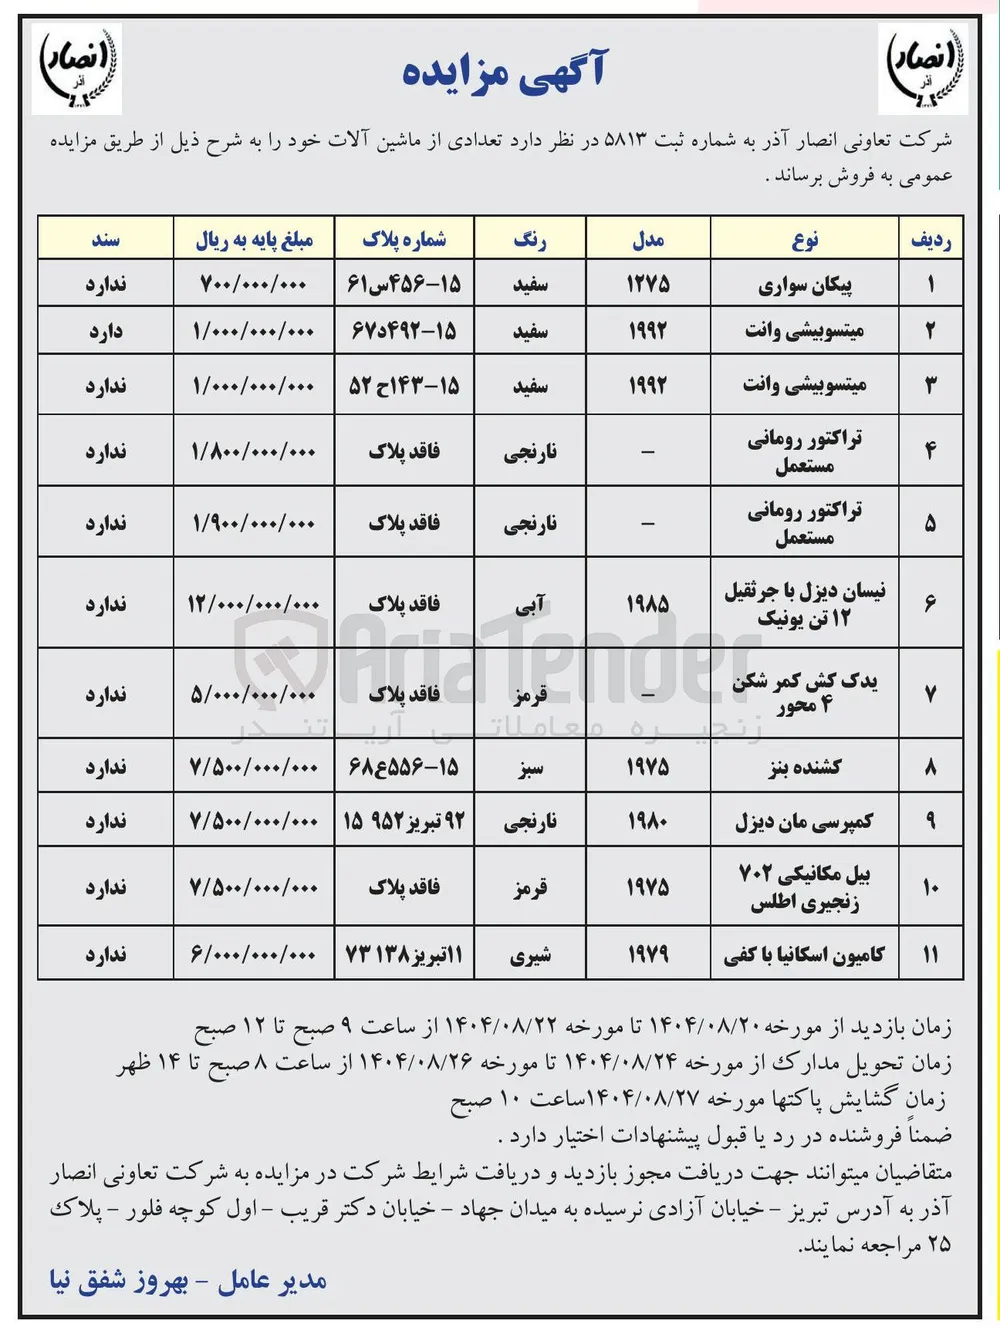 انصار
آذر
آگهی مزایده
انصار
آذر
شرکت تعاونی انصار آذر به شماره ثبت ۵۸۱۳ در نظر دارد تعدادی از ماشین آلات خود را به شرح ذیل از طریق مزایده
عمومی به فروش برساند .
ردیف نوع مدل رنگ شماره پلاک مبلغ پایه به ریال سند
۱ پیکان سواری ۱۲۷۵ سفید ۱۵-۴۵۶س۶۱ ۷۰۰/۰۰۰/۰۰۰ ندارد
۲ میتسوبیشی وانت ۱۹۹۲ سفید ۱۵-۴۹۲د۶۷ ۱/۰۰۰/۰۰۰/۰۰۰ دارد
۳ میتسوبیشی وانت ۱۹۹۲ سفید ۱۵-۱۴۳ح ۵۲ ۱/۰۰۰/۰۰۰/۰۰۰ ندارد
۴ تراکتور رومانی مستعمل - نارنجی فاقد پلاک ۱/۸۰۰/۰۰۰/۰۰۰ ندارد
۵ تراکتور رومانی مستعمل - نارنجی فاقد پلاک ۱/۹۰۰/۰۰۰/۰۰۰ ندارد
۶ نیسان دیزل با جرثقیل ۱۲ تن یونیک ۱۹۸۵ آبی فاقد پلاک ۱۲/۰۰۰/۰۰۰/۰۰۰ ندارد
AriaTender
۷ یدک کش کمر شکن ۴ محور - قرمز فاقد پلاک ۵/۰۰۰/۰۰۰/۰۰۰ ندارد
زنجیره معاملاتی آریاتندر
۸ کشنده بنز ۱۹۷۵ سبز ۱۵-۵۵۶ع۶۸ ۷/۵۰۰/۰۰۰/۰۰۰ ندارد
۹ کمپرسی مان دیزل ۱۹۸۰ نارنجی ۹۲ تبریز۹۵۲ ۱۵ ۷/۵۰۰/۰۰۰/۰۰۰ ندارد
۱۰ بیل مکانیکی ۷۰۲ زنجیری اطلس ۱۹۷۵ قرمز فاقد پلاک ۷/۵۰۰/۰۰۰/۰۰۰ ندارد
۱۱ کامیون اسکانیا با کفی ۱۹۷۹ شیری ۱۱تبریز۱۳۸ ۷۳ ۶/۰۰۰/۰۰۰/۰۰۰ ندارد
زمان بازدید از مورخه ۱۴۰۴/۰۸/۲۰ تا مورخه ۱۴۰۴/۰۸/۲۲ از ساعت ۹ صبح تا ۱۲ صبح
زمان تحویل مدارک از مورخه ۱۴۰۴/۰۸/۲۴ تا مورخه ۱۴۰۴/۰۸/۲۶ از ساعت ۸ صبح تا ۱۴ ظهر
زمان گشایش پاکتها مورخه ۱۴۰۴/۰۸/۲۷ساعت ۱۰ صبح
ضمناً فروشنده در رد یا قبول پیشنهادات اختیار دارد .
متقاضیان میتوانند جهت دریافت مجوز بازدید و دریافت شرایط شرکت در مزایده به شرکت تعاونی انصار
آذر به آدرس تبریز - خیابان آزادی نرسیده به میدان جهاد - خیابان دکتر قریب - اول کوچه فلور - پلاک
۲۵ مراجعه نمایند.
مدیر عامل - بهروز شفق نیا